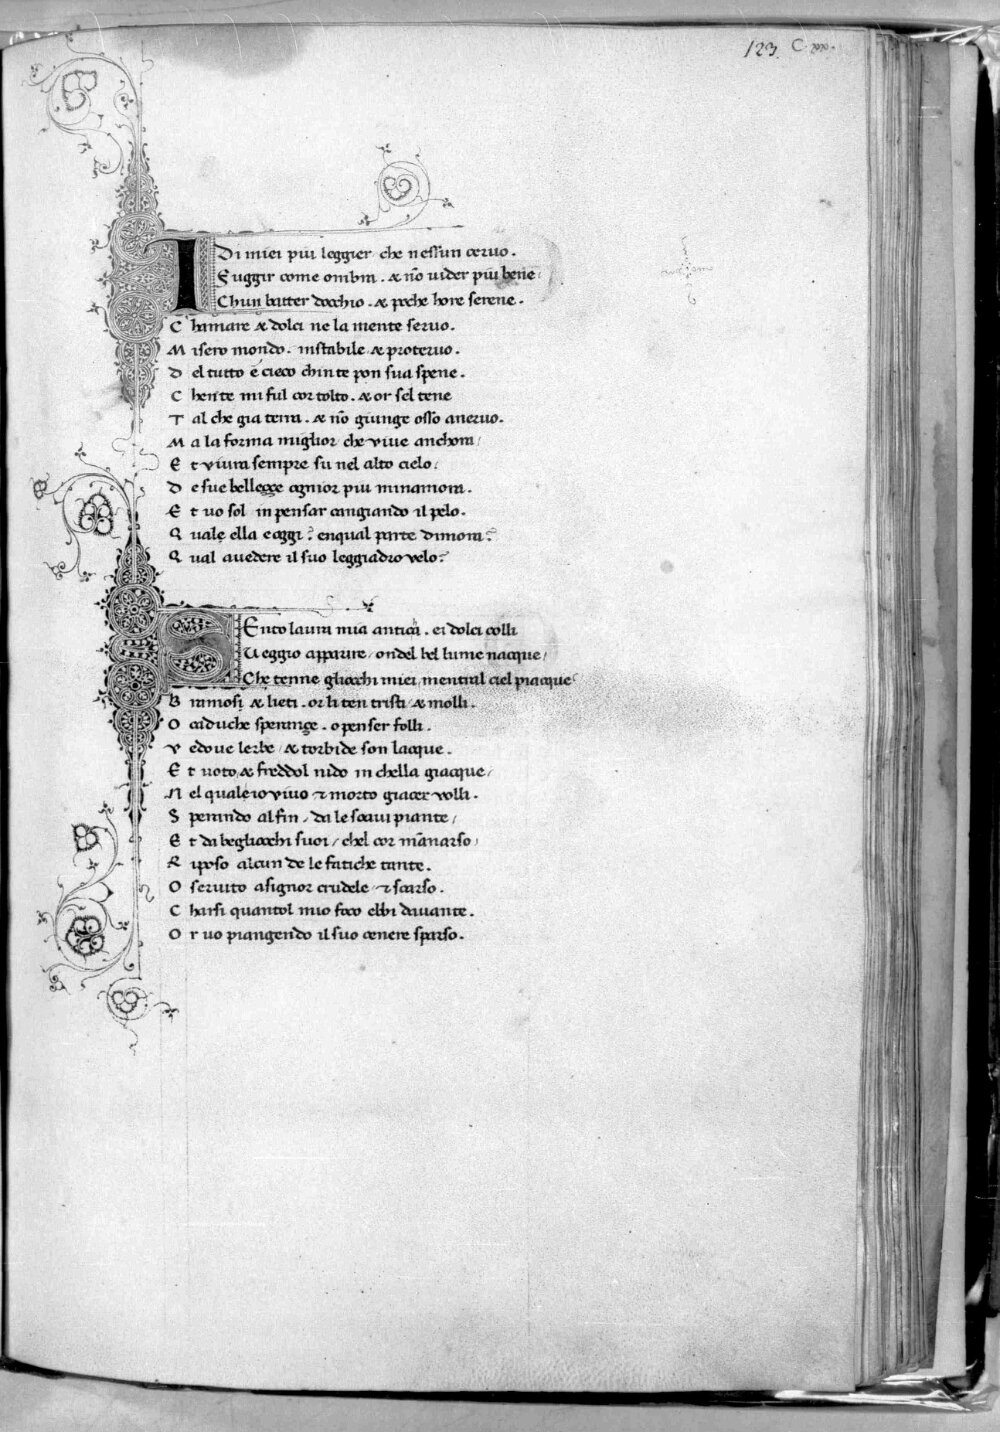 123.
I Di miei piu leggier che nessun ceruo.
Fuggir come ombra. & nō uider piu bene
Chun batter docchio. & poche hore serene.
C hamare & dolci ne la mente seruo.
M isero mondo. instabile & proteruo.
D el tutto ē cieco chinte pon sua spene.
C hente mi ful cor tolto. & or sel tene
T al che gia terra. & nō giunge osso aneruo.
M a la forma miglior che viue anchora/
E t viura sempre su nel alto cielo:
D e sue bellezze ognior piu minamora.
E t uo sol in pensar cangiando il pelo.
Q uale ella e oggi? enqual parte dimora?
Q ual auedere il suo leggiadro velo?
SEnto laura mia anticha. ei dolci colli
Veggio apparire/ ondel bel lume nacque/
Che tenne gliocchi miei mentral ciel piacque
B ramosi & lieti. or li ten tristi & molli.
O caduche speranze. o penser folli.
V edoue lerbe & torbide son lacque.
E t uoto & freddol nido in chella giacque/
N el quale io viuo & morto giacer volli.
S perando alfin/ da le soaui piante/
E t da begliocchi suoi/ chel cor mānarso
R iposo alcun de le fatiche tante.
O seruito a signor crudele & scarso.
C harsi quantol mio foco ebbi dauante.
O r uo piangendo il suo cenere sparso.